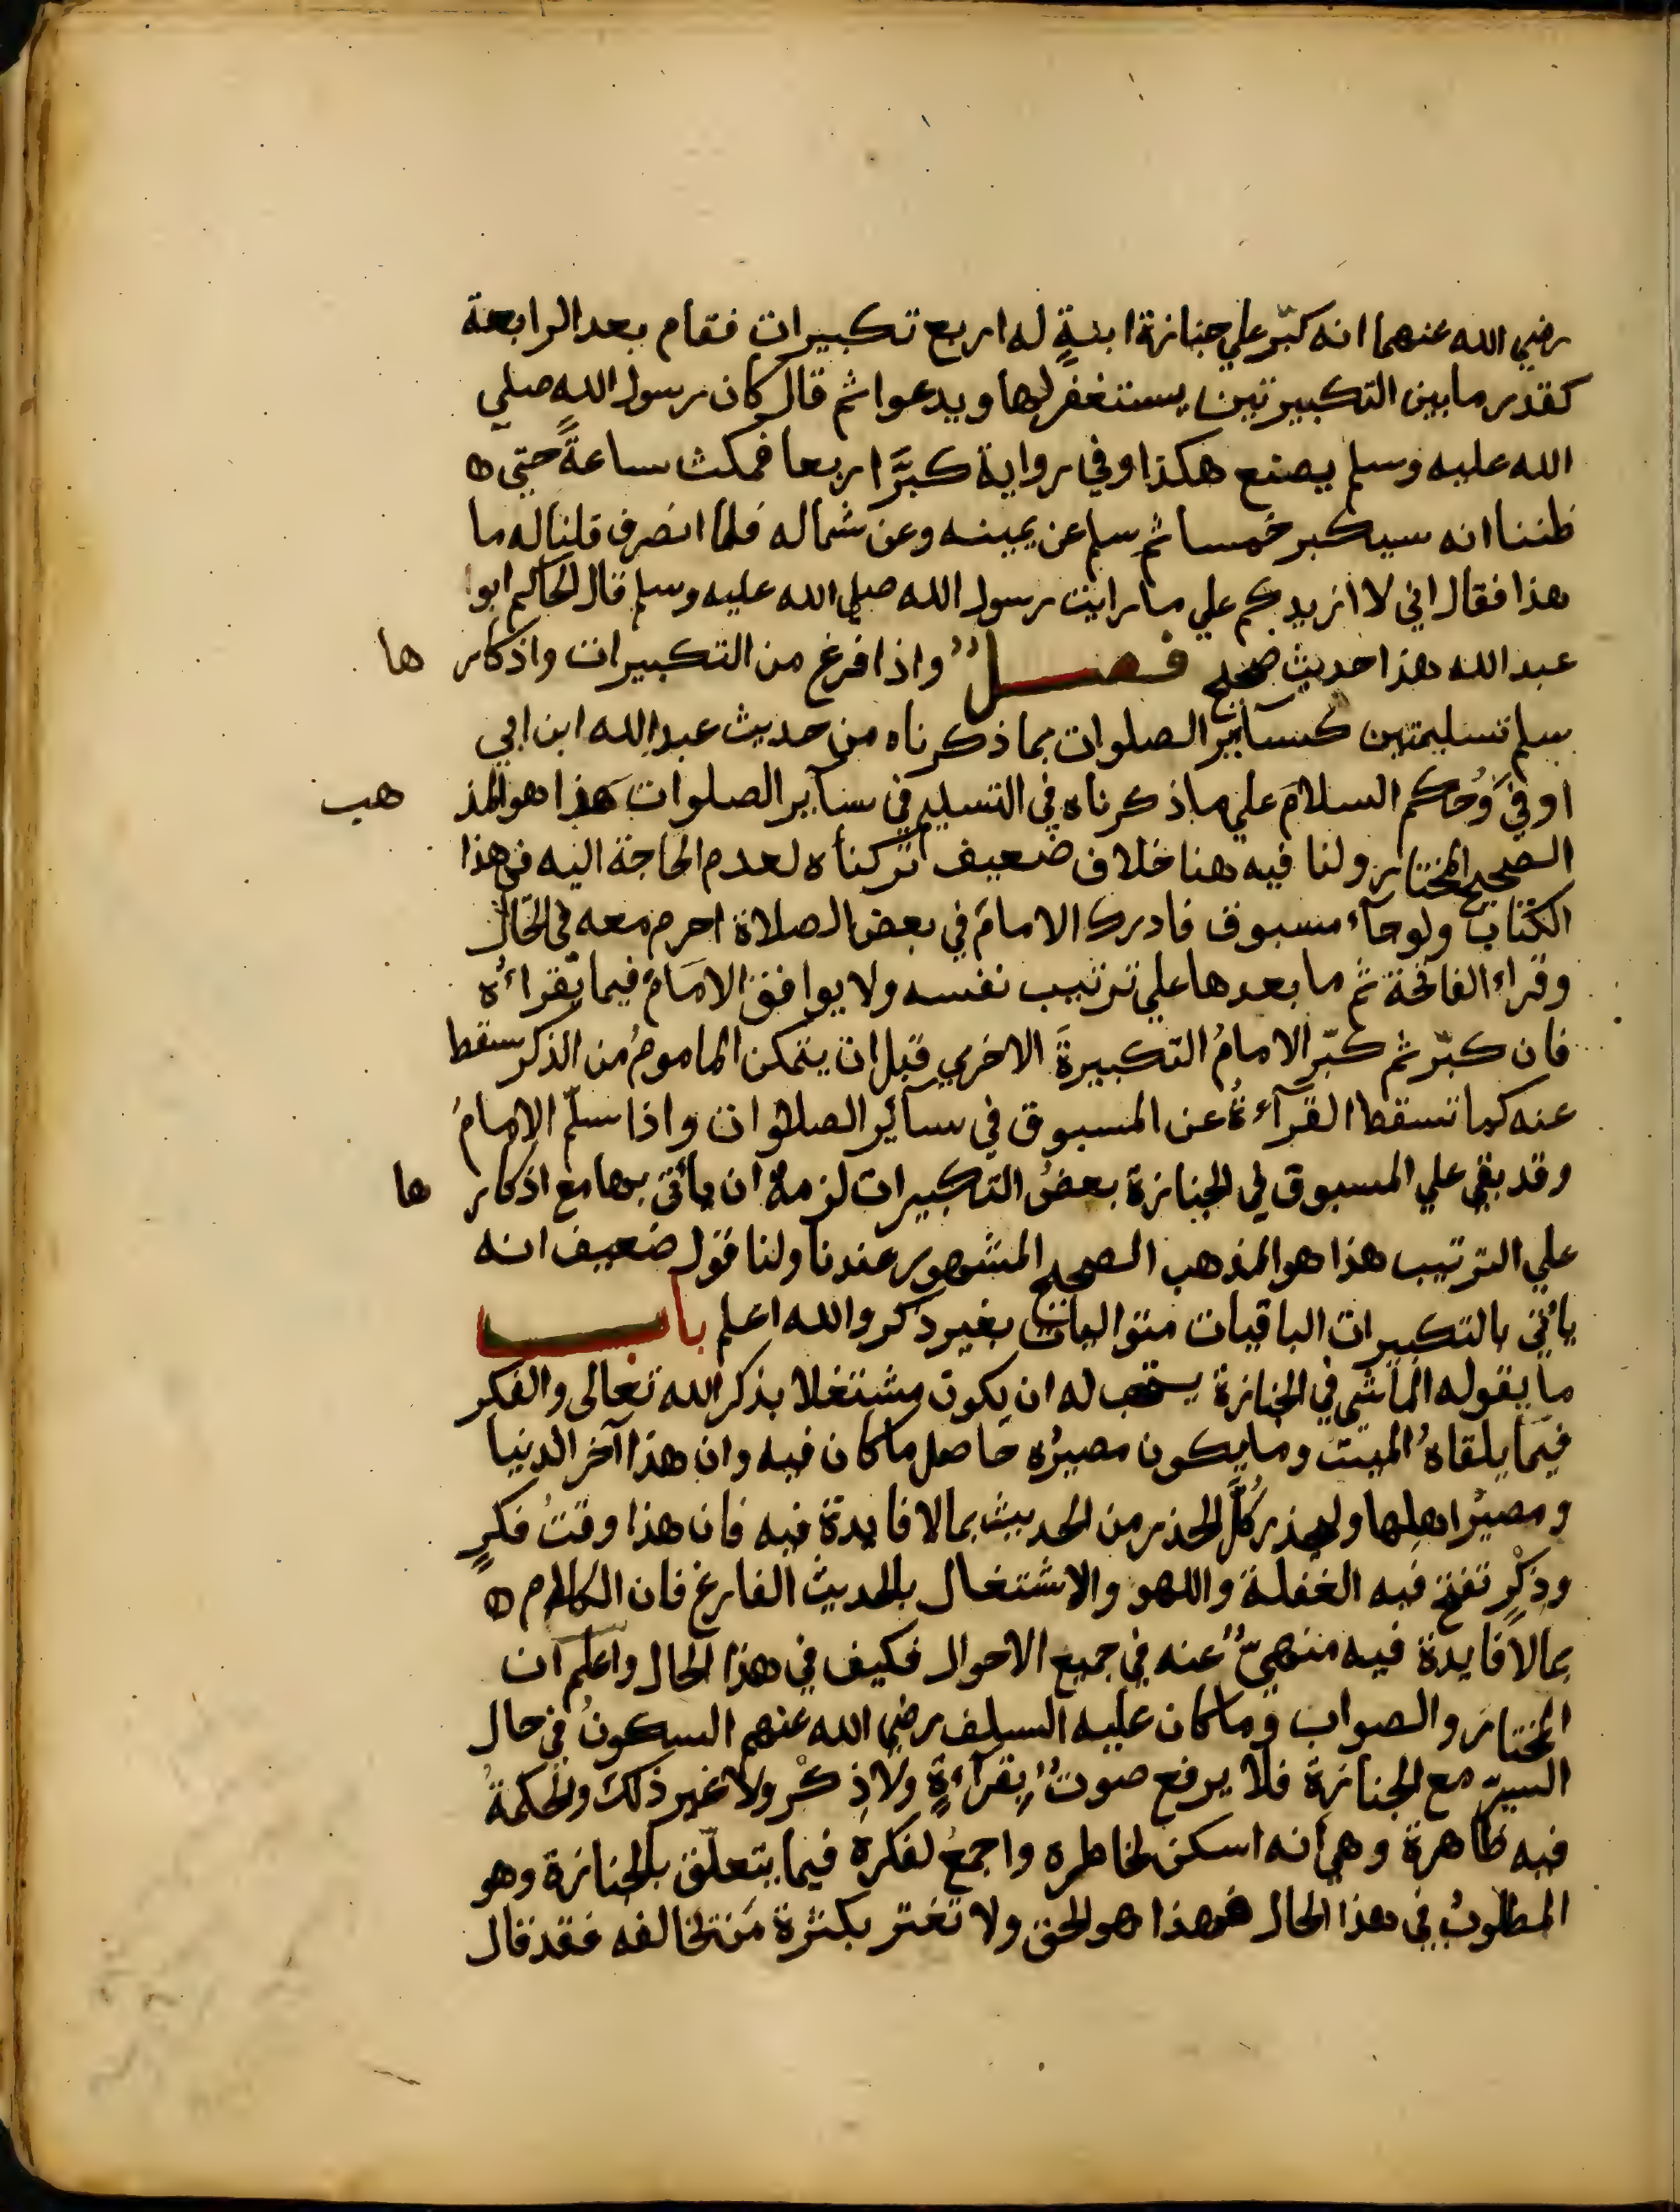 رضي الله عنهما انه كبّر علي جنازة ابنةٍ له اربع تكبيرات فقام بعد الرابعة
كقدر ما بين التكبيرتين يستغفر لها ويدعوا ثم قال كان رسول الله صلي
الله عليه وسلم يصنع هكذا وفي رواية كبَّر اربعا فمكث ساعةً حتي ه
ظننا انه سيكبر خمسا ثم سلم عن يمينه وعن شماله فلما انصرف قلنا له ما
هذا فقال اني لا ازيدكم علي ما رايت رسول الله صلي الله عليه وسلم قال الحاكم ابوا
عبد الله هذا حديث صحيح فصلٌ واذا فرغ من التكبيرات واذكار ها
سلم تسليمتين كسآئر الصلوات بما ذكرناه من حديث عبد الله ابن ابي
اوفي وُحكم السلام علي ما ذكرناه في التسليم في سآير الصلوات هذا هو المذ هب
الصحيح المختار ولنا فيه هنا خلاف ضعيف تركناه لعدم الحاجة اليه في هذا
الكتاب ولو جآء مسبوق فادرك الامام في بعض الصلاة احرم معه في الحال
وقراء الفاتحة ثم ما بعدها علي ترتيب نفسه ولا يوافق الامَامَ فيما يقراءُه
فان كبّر ثم كبّر الامامُ التكبيرةَ الاخري قبل ان يتمكن الماموم من الذكر سقط
عنه كما تسقط القرآءةُ عن المسبوق في سآئر الصلوات واذا سلّم الامامُ
وقد بقي علي المسبوق في الجنازة بعضُ التكبيرات لزمهُ ان يأتي بها مع اذكار ها
علي الترتيب هذا هو المذهب الصحيح المشهور عندنا ولنا قول ضعيف انه
يأتي بالتكبيرات الباقيات متواليات بغير ذكر والله اعلم باب
ما يقوله الماشي في الجنازة يستحب له ان يكون مشتغلا بذكر الله تعالى والفكر
فيما يلقاهُ الميت وما يكون مصيرُه حاصل ما كان فيه وان هذا آخر الدنيا
ومصيرُ اهلها وليحذر كلَّ الحذر من الحديث بمالا فايدة فيه فان هذا وقتُ فكرٍ
وذكْرٍ تقبح فيه الغفلة واللهو والاشتغال بالحديث الفارغ فان الكلام ه
بمالا فايدة فيه منهيٌّ عنه في جميع الاحوال فكيف في هذا الحال واعلم ان
المختار والصواب وما كان عليه السلف رضي الله عنهم السكونُ في حال
السير مع الجنازة فلا يرفع صوتٌ بقرآءةٍ ولاذِكْر ولا غير ذلك والحكمةُ
فيه ظاهرة وهي انه اسكن لخاطره واجمعُ لفكرهِ فيما يتعلّق بالجنازة وهو
المطلوبُ في هذا الحال فهذا هو الحق ولا تغتر بكثرة مَن تخالفه فقد قال